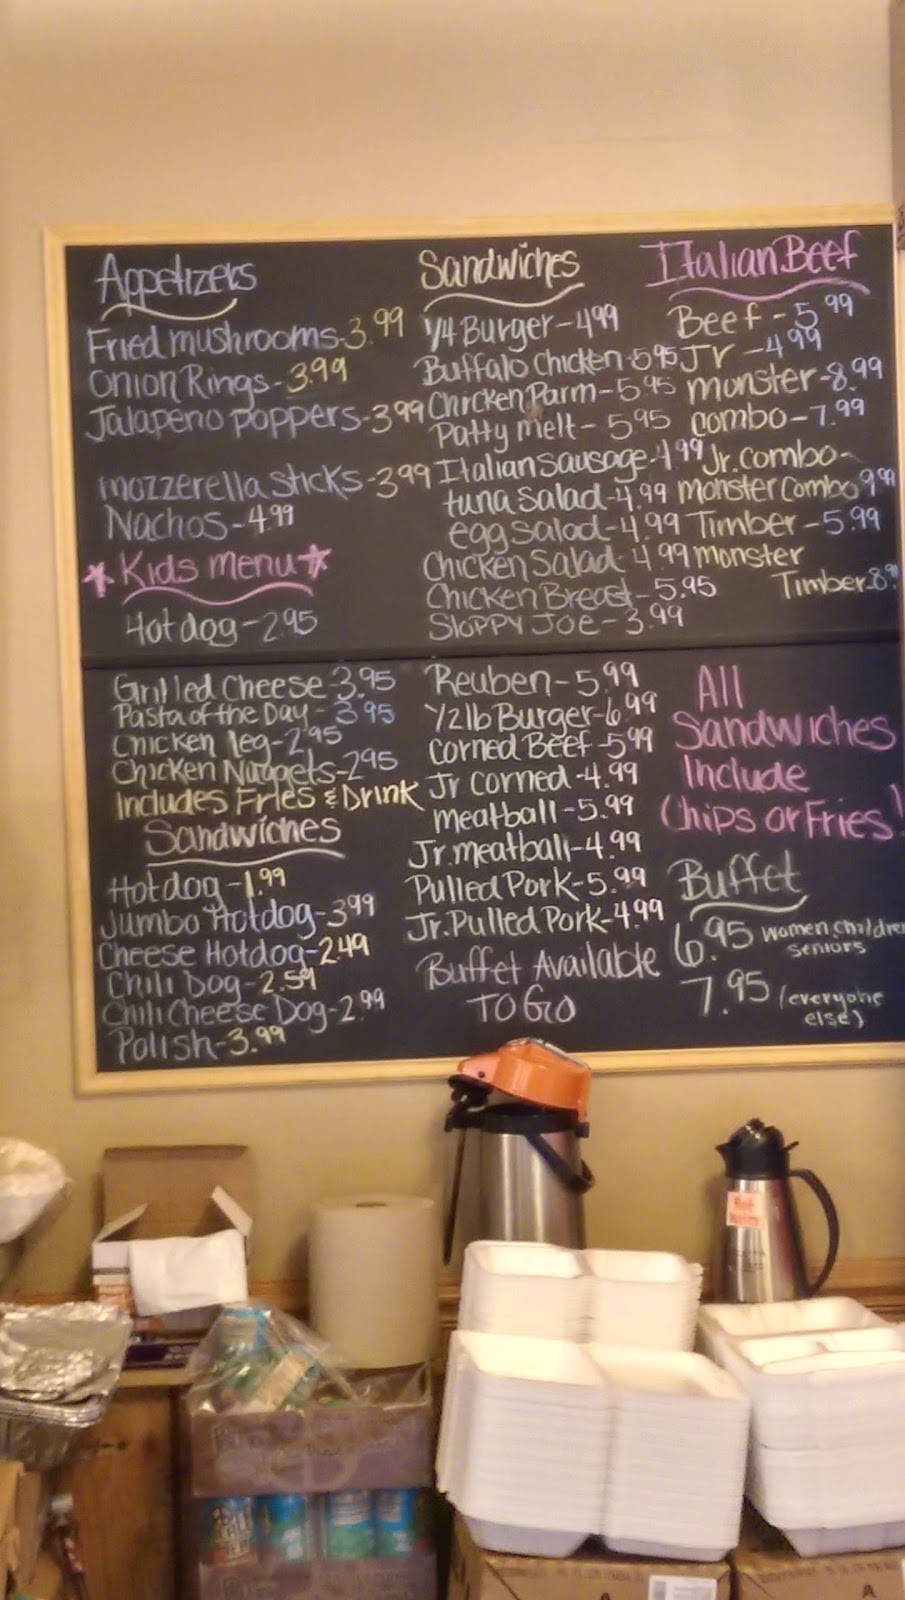 Appetizers
Fried mushrooms-3.99
Onion Rings-3.99
Jalapeno poppers-3.99
mozzerella sticks-3.99
Nachos-4.99
Kids menu
Hot dog-2.95
Grilled Cheese-3.95
Pasta of the Day-3.95
Chicken leg-2.95
Chicken Nuggets-2.95
Includes Fries & Drink
Sandwiches
Hotdog-1.99
Jumbo Hotdog-3.99
Cheese Hotdog-2.49
Chili Dog-2.59
Chili Cheese Dog-2.99
Polish-3.99
Sandwiches
1/4 Burger-4.99
Buffalo Chicken-5.95
Chicken Parm-5.95
Patty melt-5.95
Italian Sausage-4.99
tuna Salad-4.99
egg Salad-4.99
Chicken Salad-4.99
Chicken Breast-5.95
Sloppy Joe-3.99
Reuben-5.99
1/2 lb Burger-6.99
Corned Beef-5.99
Jr Corned-4.99
meatball-5.99
Jr. meatball-4.99
Pulled Pork-5.99
Jr. Pulled Pork-4.99
Buffet Available
TO GO
Italian Beef
Beef-5.99
Jr-4.99
monster-8.99
combo-7.99
Jr. combo-
monster Combo 9.99
Timber-5.99
monster
Timber-8.
All
Sandwiches
Include
Chips or Fries!
Buffet
6.95 women, children
seniors
7.95 (everyone
else)